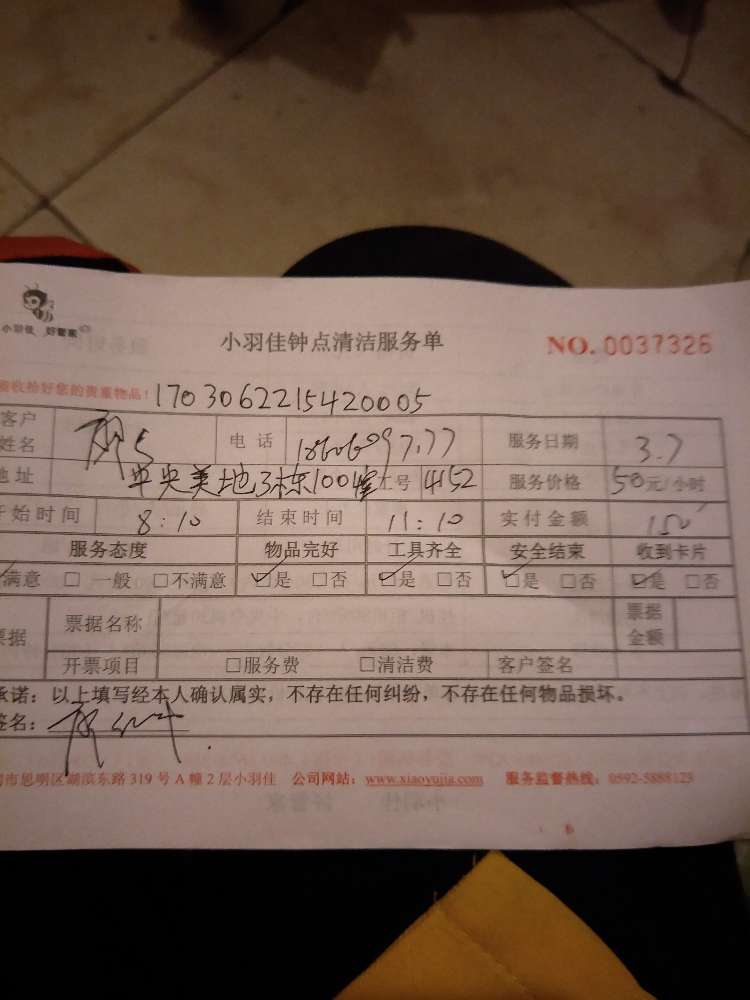 小羽佳 好管家
小羽佳钟点清洁服务单 NO. 0037326
收拾好您的贵重物品！ 1703062215420005
客户姓名 电话 服务日期 3.7
地址 中央美地3栋100 工号 4152 服务价格 50元/小时
开始时间 8:10 结束时间 11:10 实付金额 150
服务态度 物品完好 工具齐全 安全结束 收到卡片
满意 □一般 □不满意 ☑是 □否 ☑是 □否 ☑是 □否 ☑是 □否
票据 票据名称 票据金额
开票项目 □服务费 □清洁费 客户签名
承诺：以上填写经本人确认属实，不存在任何纠纷，不存在任何物品损坏。
签名：
市思明区湖滨东路 319 号 A 幢 2 层小羽佳 公司网站：www.xiaoyujia.com 服务监督热线：0592-5888125